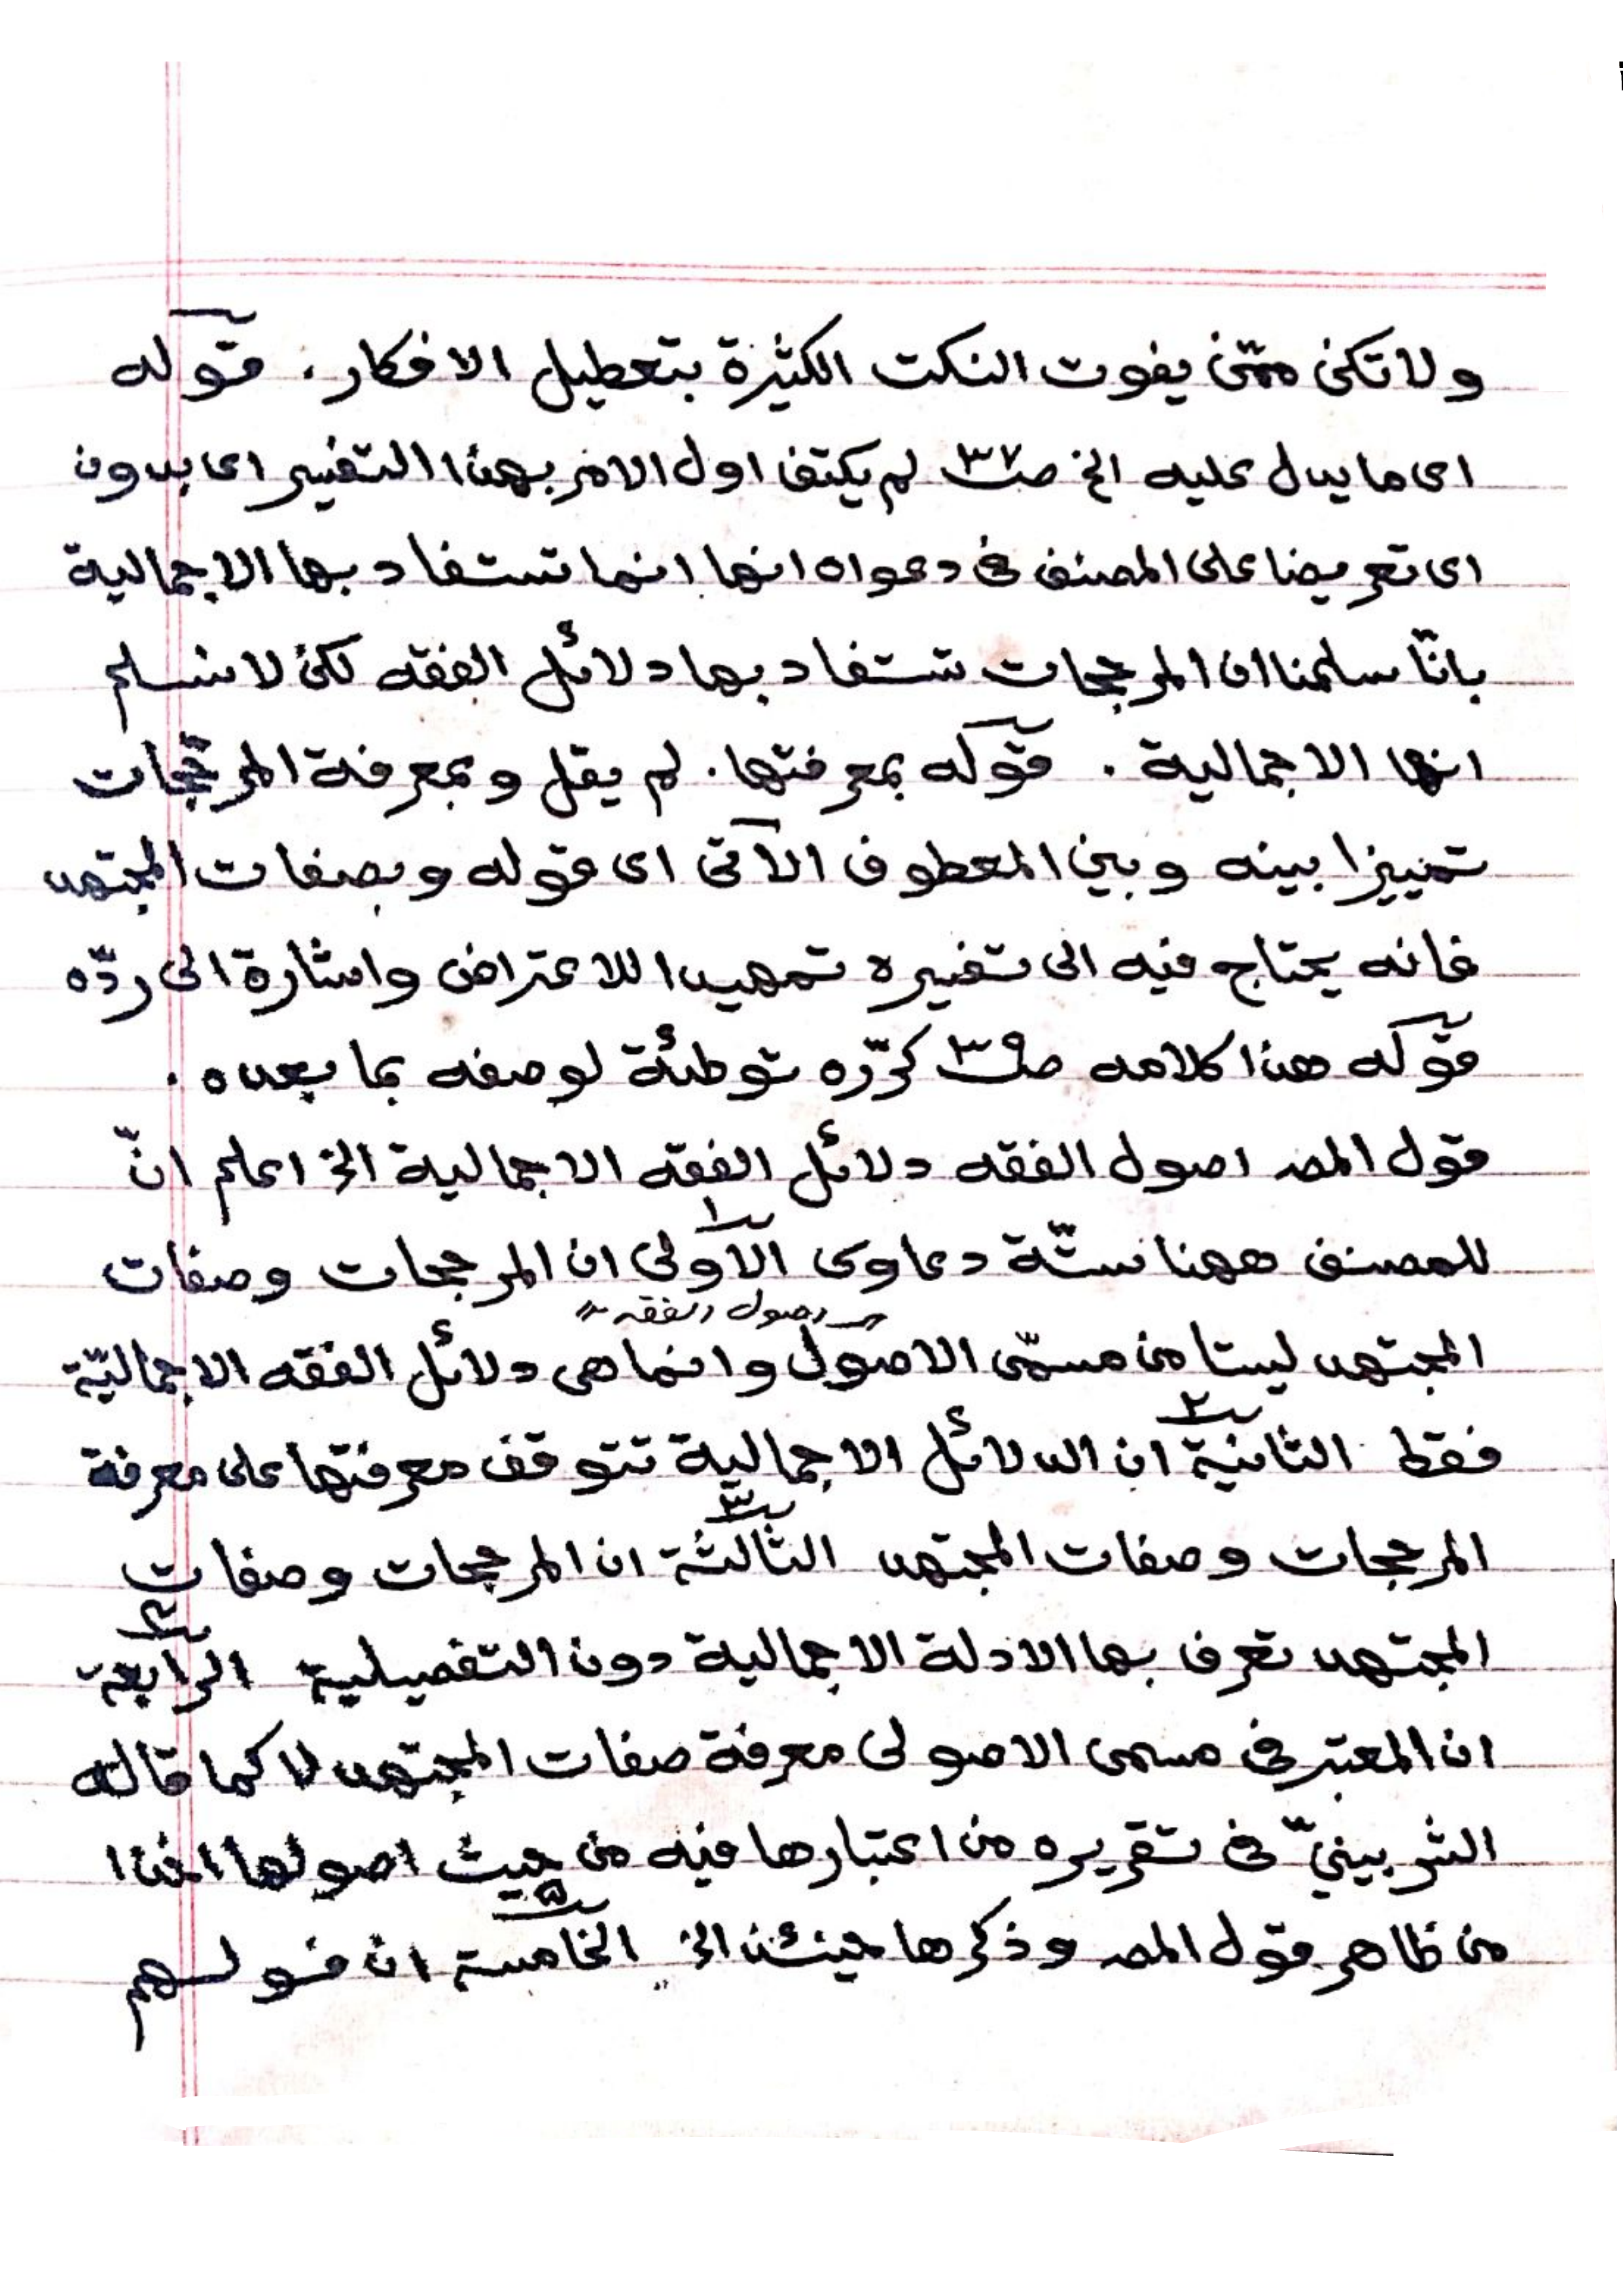 ولا تكن ممّن يفوت النكت الكثيرة بتعطيل الافكار . قوله
اى ما يدل عليه الخ صـ٣٧ لم يكتف اول الامر بهذا التفسير اى بدون
اى تعريضا على المصنف فى دعواه انها انما تستفاد بها الاجمالية
بانّا سلمنا ان المرجحات تستفاد بها دلائل الفقه لكن لا نسلم
انها الاجمالية . قوله بمعرفتها . لم يقل و بمعرفة المرجّحات
تمييزا بينه وبين المعطوف الآتى اى قوله وبصفات المجتهد
فانه يحتاج فيه الى تفسيره تمهيدا للاعتراض واشارة الى ردّه
قوله هذا كلامه صـ٣٩ كرّره توطئة لوصفه بما بعده .
قول المصـ اصول الفقه دلائل الفقه الاجمالية الخ اعلم انّ
للمصنف ههنا ستّة دعاوى الاولى ١ ان المرجحات وصفات
اصول الفقه
المجتهد ليستا من مسمّى الاصول وانما هى دلائل الفقه الاجماليّة
فقط الثانية ٢ ان الدلائل الاجمالية تتوقف معرفتها على معرفة
المرجحات وصفات المجتهد الثالثة ٣ ان المرجحات وصفات
المجتهد تعرف بها الادلة الاجمالية دون التفصيلية الرابعة ٤
ان المعتبر فى مسمى الاصولى معرفة صفات المجتهد لا كما قاله
الشربينيّ فى تقريره من اعتبارها فيه من حيث اصولها اخذا
من ظاهر قول المصـ وذكرها حينئذ الخ الخامسة ٥ ان قولهم